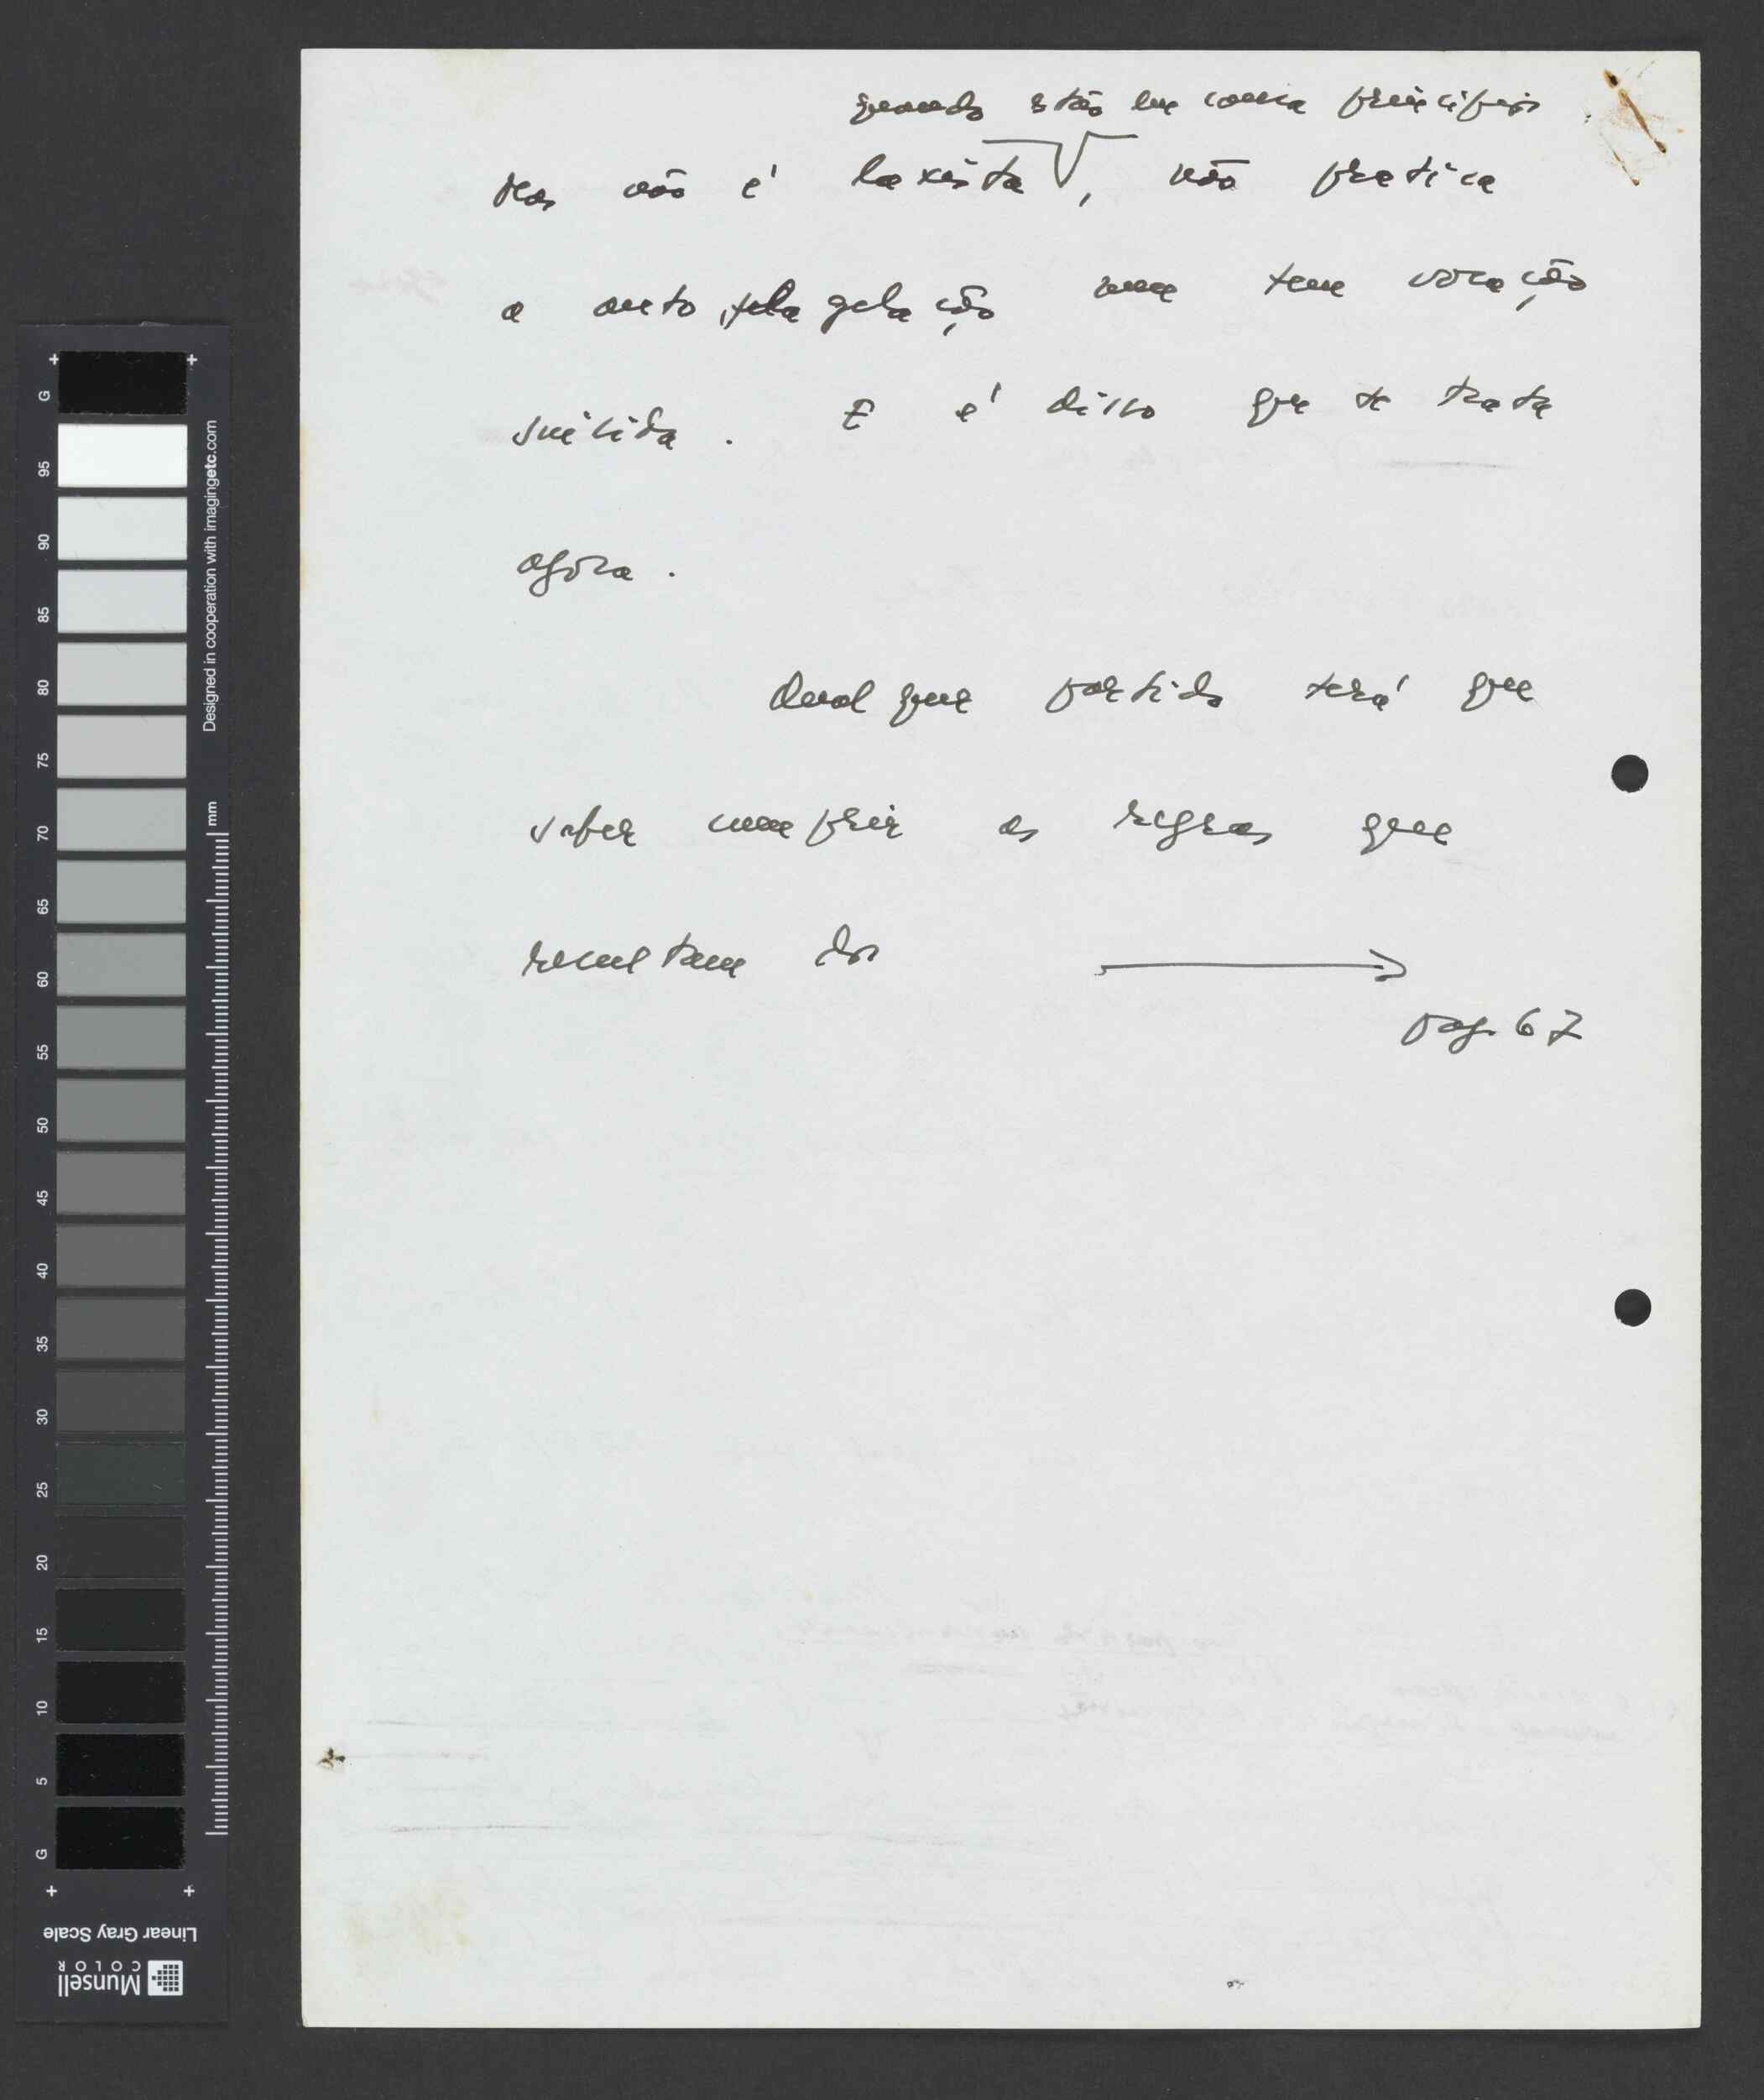 quando estão em causa princípios
Mas não é laxista, não pratica
a auto-flagelação nem tem vocação
suicida. E é disso que se trata
agora.
Qualquer partido terá que
saber cumprir as regras que
resultam dos
pag. 67
G
95
90
85
80
75
70
65
60
55
50
45
40
35
30
25
20
15
10
5
G
Designed in cooperation with imagingetc.com
mm
Linear Gray Scale
Munsell
COLOR